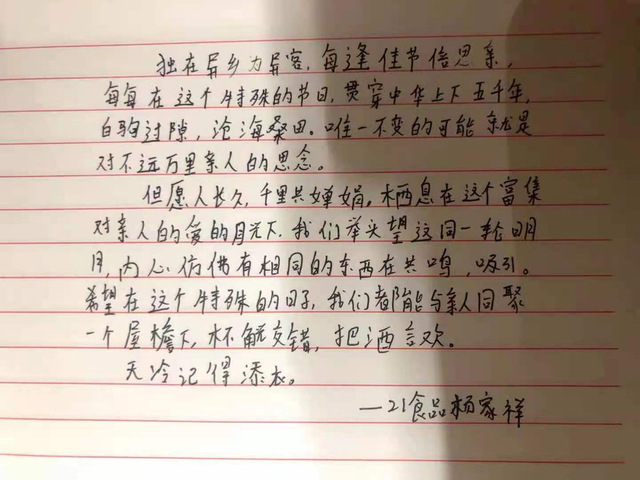 独在异乡为异客，每逢佳节倍思亲，
每每在这个特殊的节日，贯穿中华上下五千年，
白驹过隙，沧海桑田。唯一不变的可能就是
对不远万里亲人的思念。
但愿人长久，千里共婵娟。栖息在这个富集
对亲人的爱的月光下，我们举头望这同一轮明
月，内心仿佛有相同的东西在共鸣，吸引。
希望在这个特殊的日子，我们都能与亲人同聚
一个屋檐下，杯觥交错，把酒言欢。
天冷记得添衣。
—21食品杨家祥